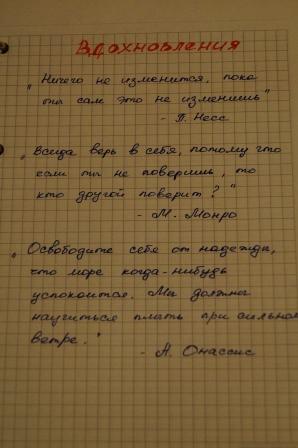 Вдохновления
„Ничего не изменится, пока
ты сам это не изменишь"
- П. Несс
„Всегда верь в себя, потому что
если ты не поверишь, то
кто другой поверит?"
- М. Монро
„Освободите себя от надежды,
что море когда-нибудь
успокоится. Мы должны
научиться плыть при сильном
ветре."
- А. Онассис